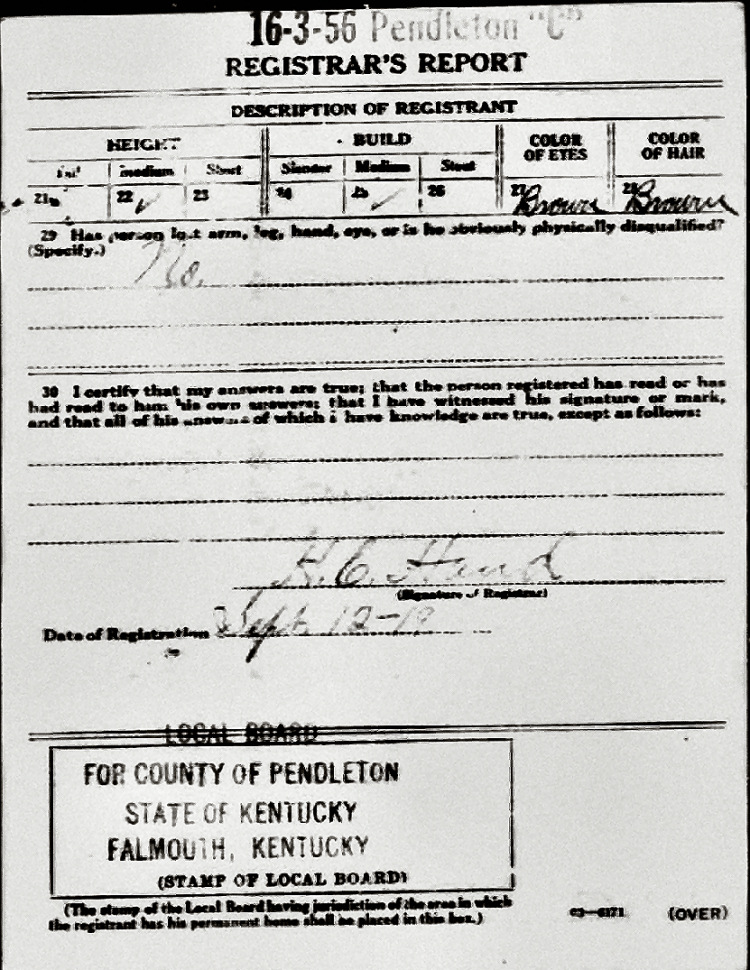 16-3-56 Pendleton "C"
REGISTRAR'S REPORT
DESCRIPTION OF REGISTRANT
HEIGHT BUILD COLOR OF EYES COLOR OF HAIR
medium Short Slender Medium Stout
21 22 ✓ 23 24 25 ✓ 26 27 Brown 28 Brown
29 Has person lost arm, leg, hand, eye, or is he obviously physically disqualified?
(Specify.) No.
30 I certify that my answers are true; that the person registered has read or has
had read to him his own answers; that I have witnessed his signature or mark,
and that all of his answers of which I have knowledge are true, except as follows:
H.E. Hand
(Signature of Registrar)
Date of Registration Sept. 12-18
LOCAL BOARD
FOR COUNTY OF PENDLETON
STATE OF KENTUCKY
FALMOUTH, KENTUCKY
(STAMP OF LOCAL BOARD)
(The stamp of the Local Board having jurisdiction of the area in which
the registrant has his permanent home shall be placed in this box.)
03—6171 (OVER)